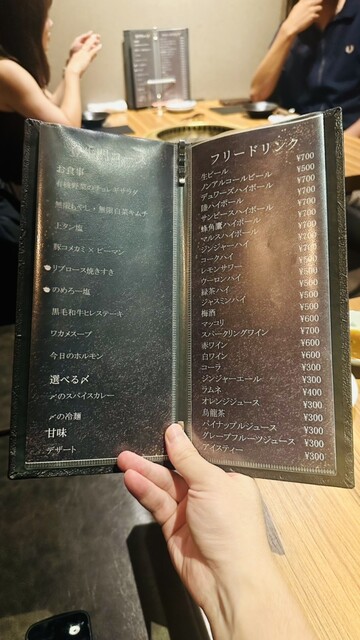 お食事
有機野菜のチョレギサラダ
無限もやし・無限白菜キムチ
上タン塩
豚コメカミ×ピーマン
リブロース焼きすき
のめろー塩
黒毛和牛ヒレステーキ
ワカメスープ
今日のホルモン
選べる〆
〆のスパイスカレー
〆の冷麺
甘味
デザート
フリードリンク
生ビール ¥700
ノンアルコールビール ¥500
デュワーズハイボール ¥700
陸ハイボール ¥700
サンピースハイボール ¥700
蜂角鷹ハイボール ¥700
マルスハイボール ¥700
ジンジャーハイ ¥700
コークハイ
レモンサワー ¥500
ウーロンハイ ¥500
緑茶ハイ ¥500
ジャスミンハイ ¥500
梅酒 ¥500
マッコリ ¥500
スパークリングワイン ¥700
赤ワイン ¥600
白ワイン ¥600
コーラ ¥300
ジンジャーエール ¥300
ラムネ ¥400
オレンジジュース ¥300
烏龍茶 ¥300
パイナップルジュース ¥300
グレープフルーツジュース ¥300
アイスティー ¥300